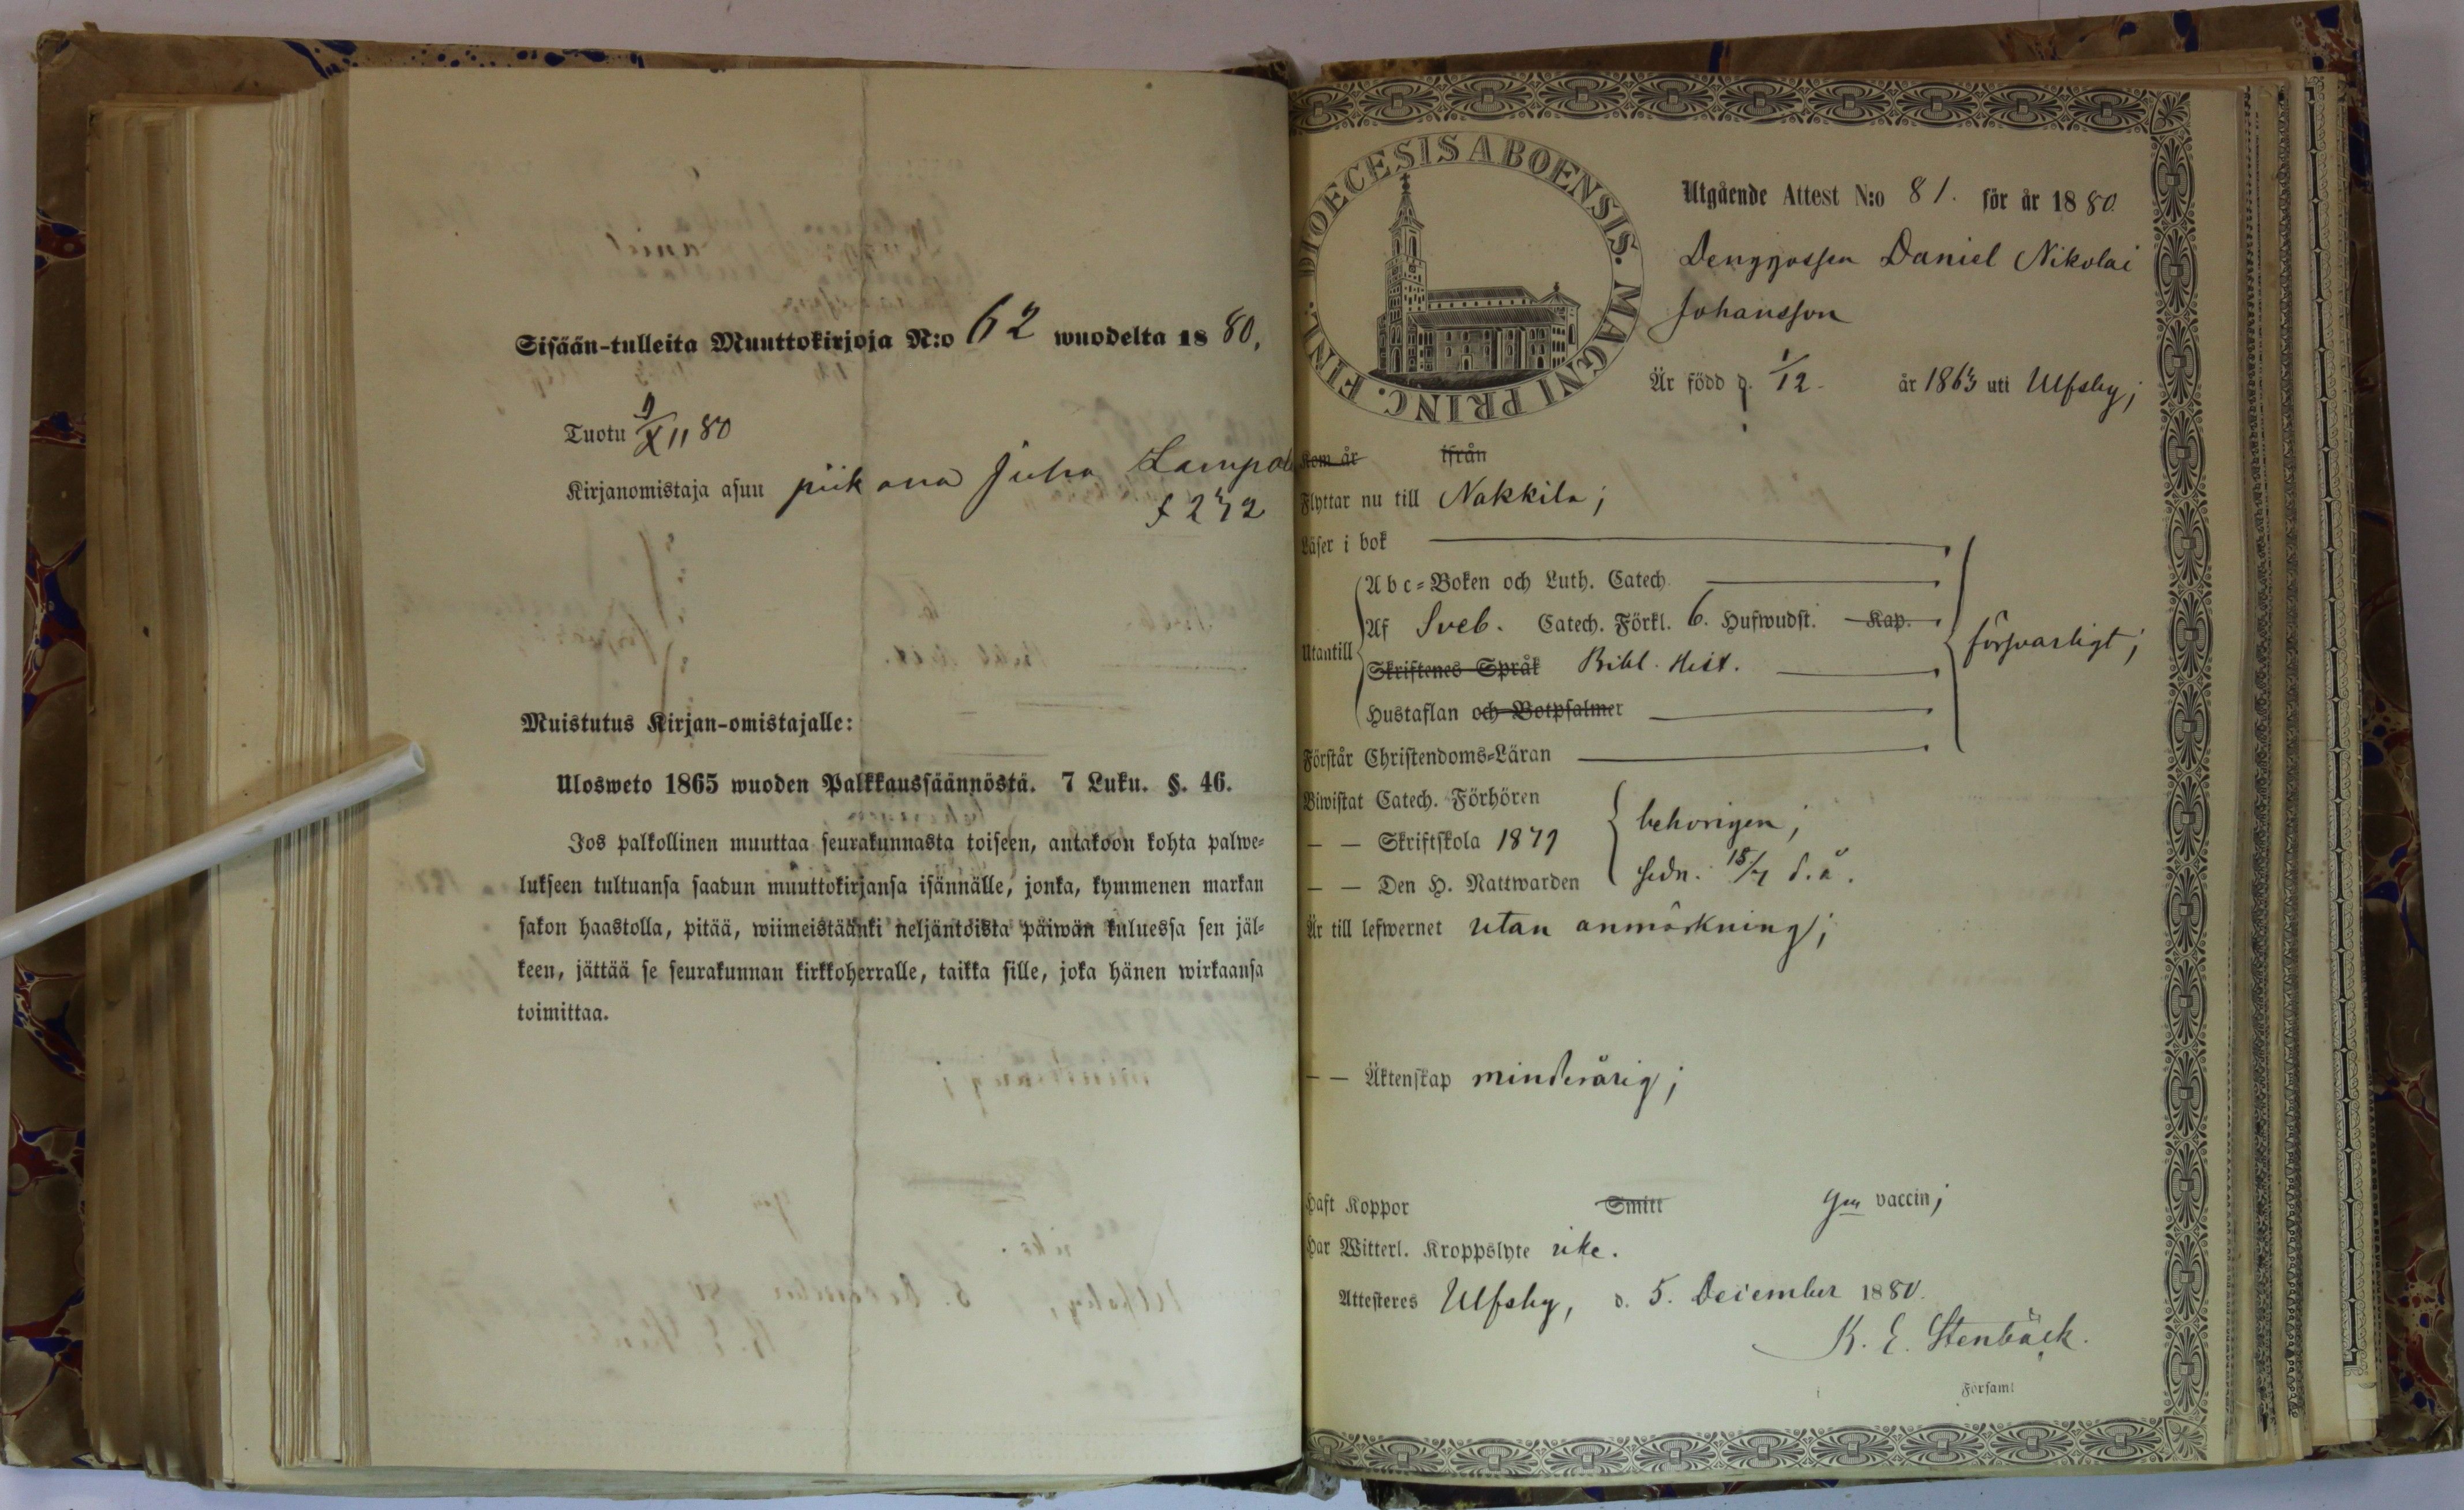 Sisään-tulleita Muuttokirjoja N:o 62 wuodelta 1880,
Tuotu 9/XII 80
Kirjanomistaja asuu piikana Juha
Muistutus Kirjan-omistajalle:
Ulosweto 1865 wuoden Palkkaussäännöstä. 7 Luku. §. 46.
Jos palkollinen muuttaa seurakunnasta toiseen, antakoon kohta palwe-
lukseen tultuansa saadun muuttokirjansa isännälle, jonka, kymmenen markan
sakon haastolla, pitää, wiimeistäänki neljäntoista päiwän kuluessa sen jäl-
keen, jättää se seurakunnan kirkkoherralle, taikka sille, joka hänen wirkaansa
toimittaa.
FINL. DIOECESIS ABOENSIS. MAGNI PRINC.
Utgående Attest N:o 81. för år 1880.
Drenggossen Daniel Nikolai
Johansson
Är född d. 1/12 år 1863 uti Ulfsby;
Kom år ifrån
Flyttar nu till Nakkila;
Läser i bok
Utantill
Abc-Boken och Luth. Catech.
Af Sveb. Catech. Förkl. 6. Hufwudst. Kap.
Skriftenes Språk Bibl. Hist.
Hustaflan och Botpsalmer
försvarligt;
Förstår Christendoms-Läran
Biwistat Catech. Förhören
— — Skriftskola 1879
behörigen;
— — Den H. Nattwarden sedn. 18/7 d. å.
Är till lefwernet utan anmärkning;
— — Äktenskap minderårig;
Haft Koppor Smitt gm vaccin;
Har Witterl. Kroppslyte icke.
Attesteres Ulfsby, d. 5. December 1880.
K. E. Stenbäck.
Församl